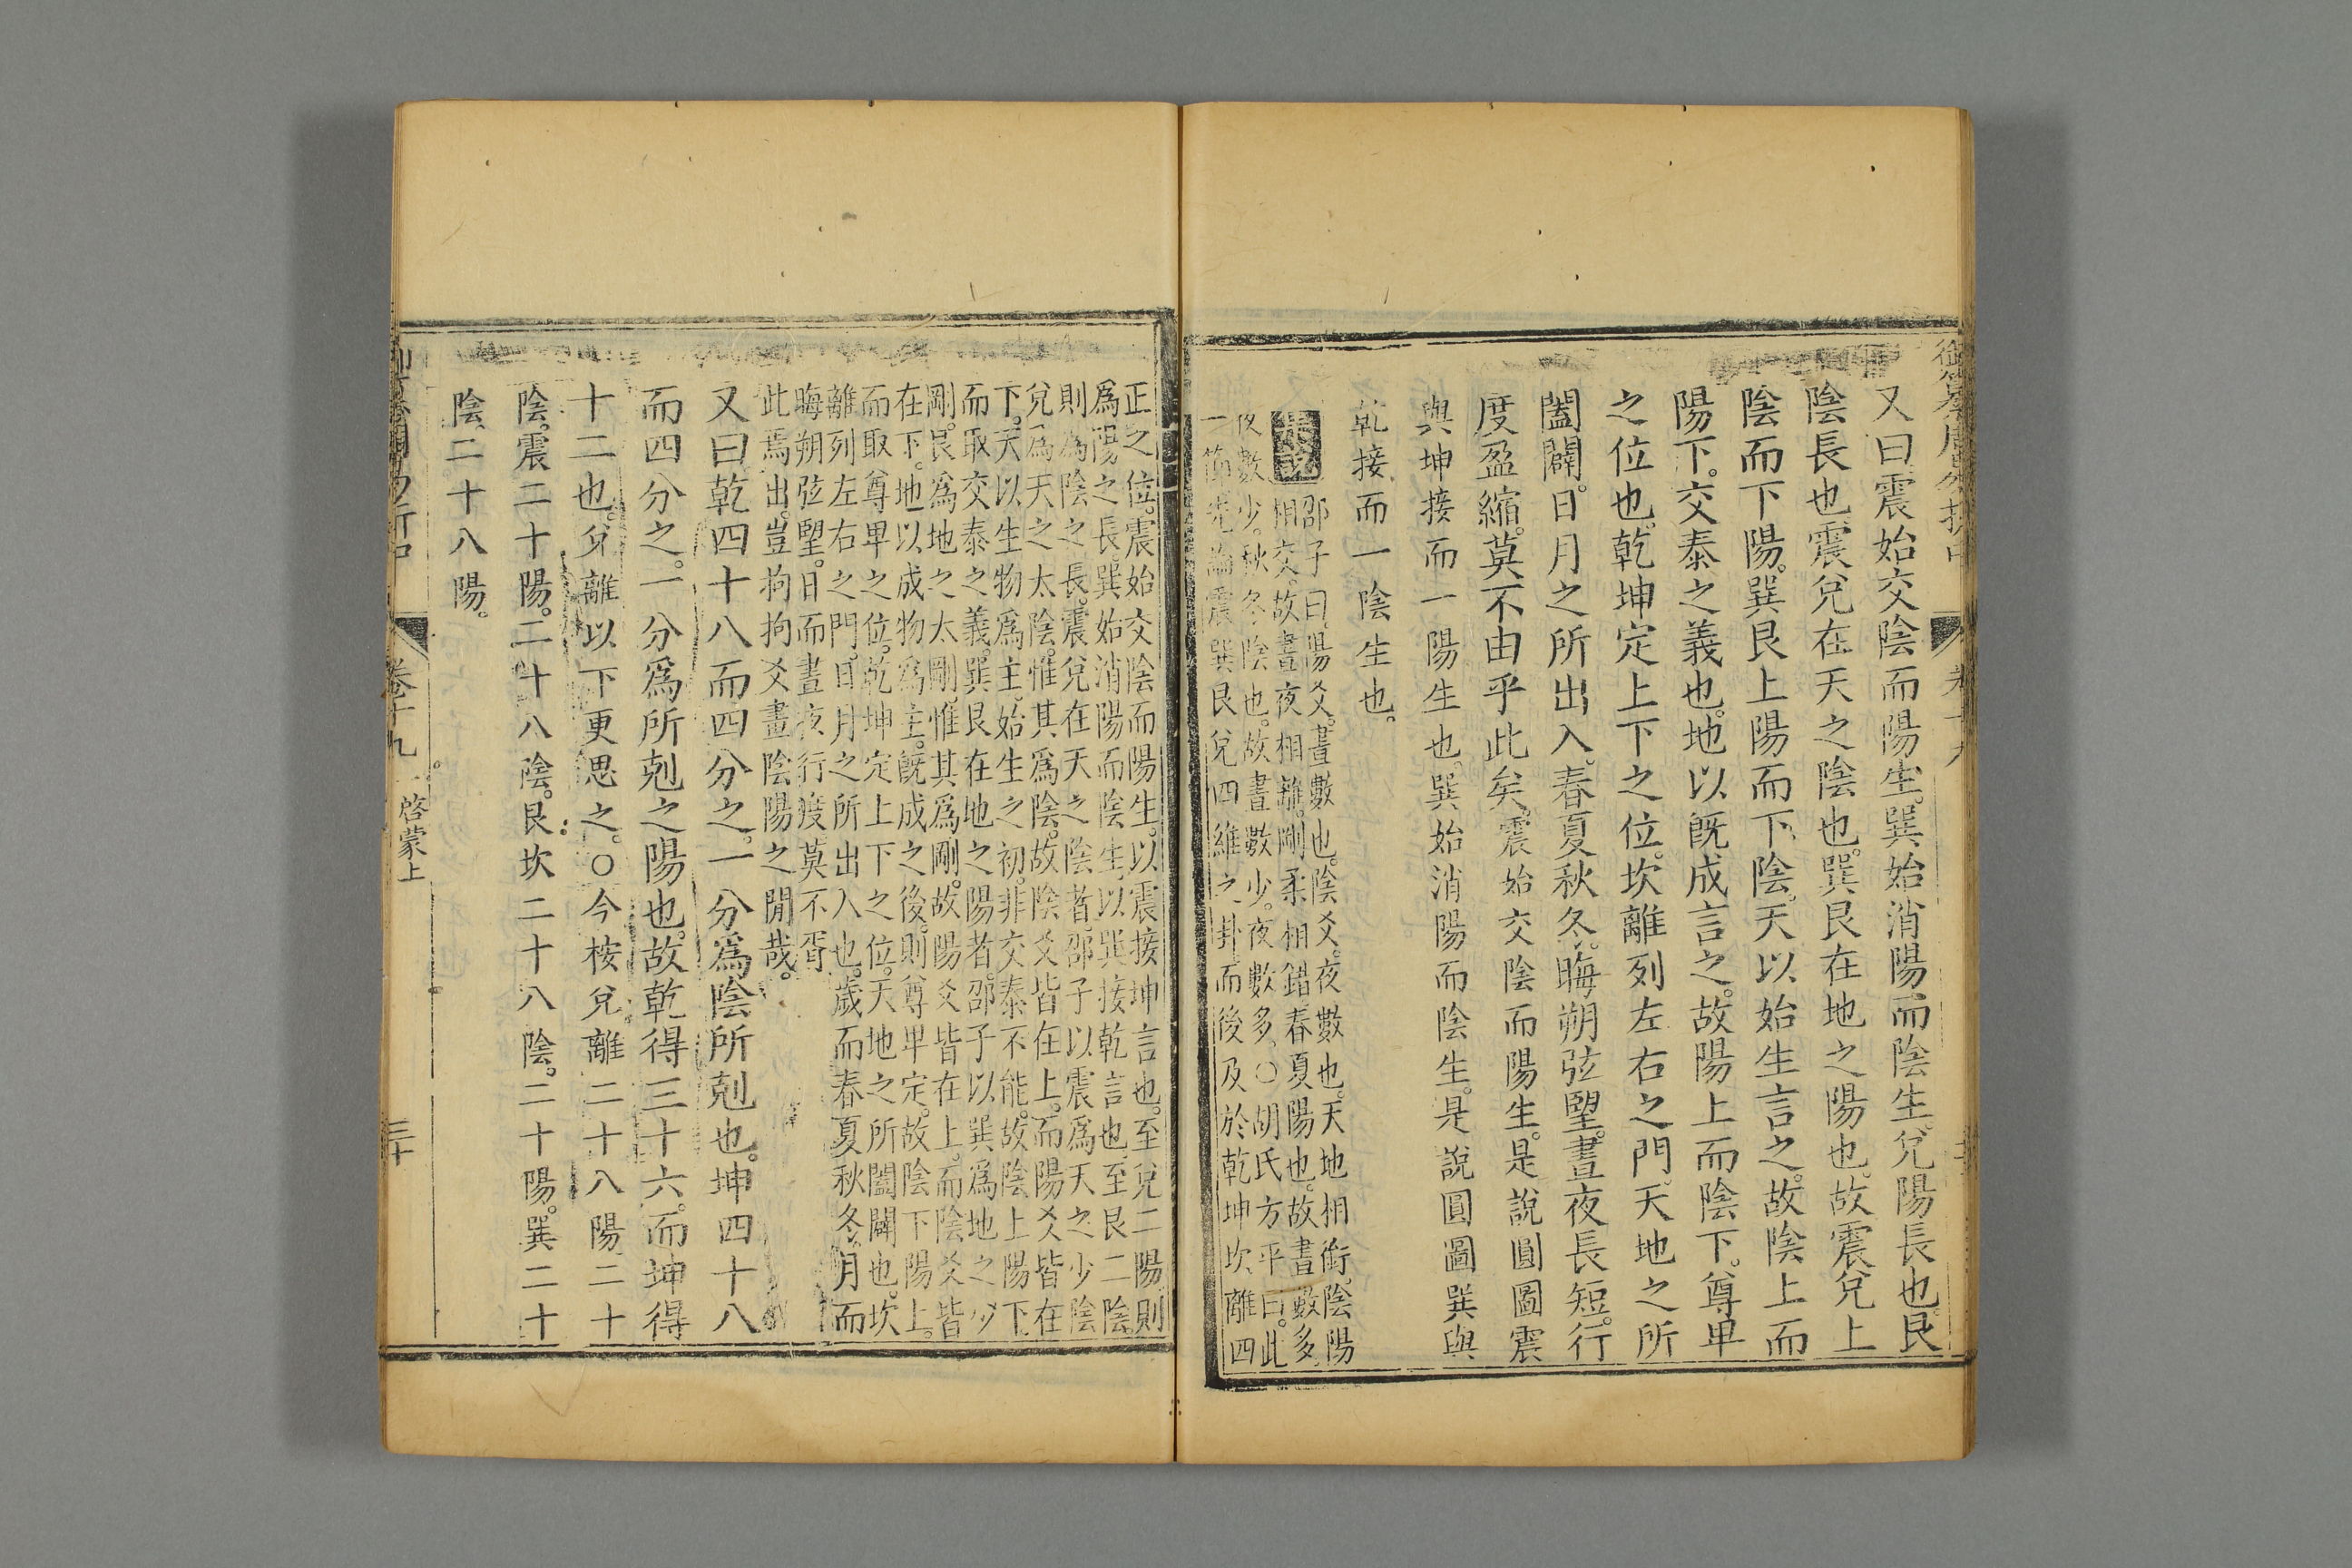 又曰震始交陰而陽生。巽始消陽而陰生。兌陽長也。艮
陰長也震兌在天之陰也。巽艮在地之陽也。故震兌上
陰而下陽。巽艮上陽而下陰。天以始生言之。故陰上而
陽下。交泰之義也。地以旣成言之。故陽上而陰下。尊卑
之位也。乾坤定上下之位。坎離列左右之門。天地之所
闔闢。日月之所出入。春夏秋冬。晦朔弦望。晝夜長短。行
度盈縮。莫不由乎此矣。震始交陰而陽生。是說圓圖震
與坤接而一陽生也。巽始消陽而陰生。是說圓圖巽與
乾接而一陰生也。
邵子曰。陽爻。晝數也。陰爻。夜數也。天地相銜。陰陽
相交。故晝夜相離。剛柔相錯。春夏陽也。故晝數多。
夜數少。秋冬陰也。故晝數少。夜數多。○胡氏方平曰。此
一節先論震巽艮兌四維之卦而後及於乾坤坎離四
正之位。震始交陰而陽生。以震接坤言也。至兌二陽。則
爲陽之長。巽始消陽而陰生。以巽接乾言也。至艮二陰。
則爲陰之長。震兌在天之陰者。邵子以震爲天之少陰
兌爲天之太陰。惟其爲陰。故陰爻皆在上。而陽爻皆在
下。天以生物爲主。始生之初。非交泰不能。故陰上陽下
而取交泰之義。巽艮在地之陽者。邵子以巽爲地之少
剛。艮爲地之太剛。惟其爲剛。故陽爻皆在上。而陰爻皆
在下。地以成物爲主。旣成之後。則尊卑定。故陰下陽上。
而取尊卑之位。乾坤定上下之位。天地之所闔闢也。坎
離列左右之門。日月之所出入也。歲而春夏秋冬。月而
晦朔弦望。日而晝夜行度。莫不胥
此焉出。豈拘拘爻畫陰陽之閒哉。
又曰乾四十八而四分之。一分爲陰所剋也。坤四十八
而四分之。一分爲所剋之陽也。故乾得三十六。而坤得
十二也。兌離以下更思之。○今桉兌離二十八陽二十
陰。震二十陽。二十八陰。艮坎二十八陰。二十陽。巽二十
陰。二十八陽。
卷十九
啓蒙上
三十